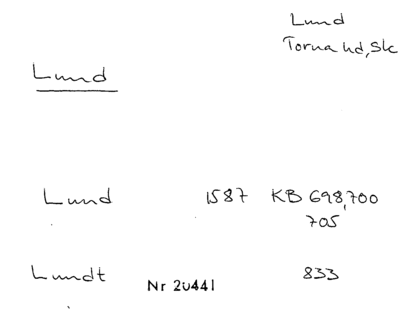 Lund
Torna hd, Sk
Lund
Lund 1587 KB 698,700
705
Lundt 833
Nr 20441